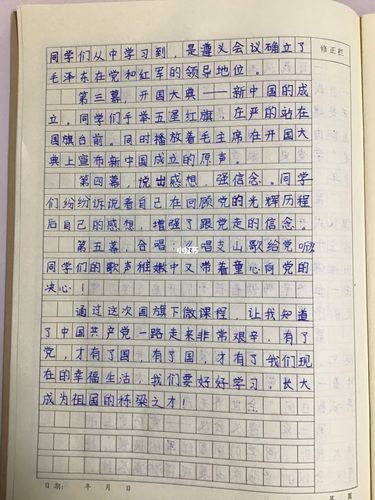 修正栏
同学们从中学习到，是遵义会议确立了
毛泽东在党和红军的领导地位。
第三幕，开国大典——新中国的成
立。同学们手举五星红旗，庄严的站在
国旗台前。同时播放着毛主席在开国大
典上宣布新中国成立的原声。
第四幕，说出感想，强信念。同学
们纷纷诉说着自己在回顾党的光辉历程
后自己的感想，增强了跟党走的信念。
第五幕，合唱：《唱支山歌给党听》
同学们的歌声稚嫩中又带着童心向党的
决心！
通过这次国旗下微课程，让我知道
了中国共产党一路走来非常艰辛，有了
党，才有了国，有了国，才有了我们现
在的幸福生活，我们要好好学习，长大
成为祖国的栋梁之才！
日期： 年 月 日